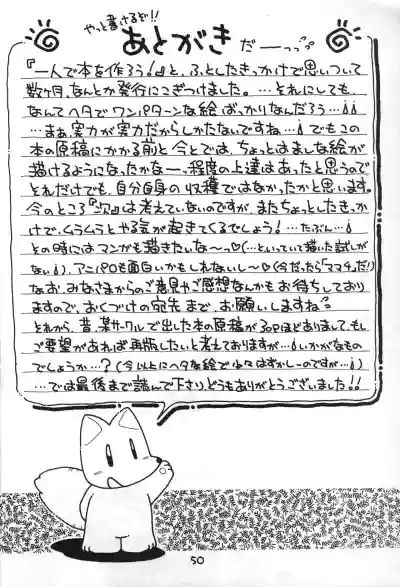 やっと書けるど!!
あとがき だーっっ
『一人で本を作ろう!』と、ふとしたきっかけで思いついて
数ヶ月、なんとか発行にこぎつけました。…それにしても、
なんてヘタでワンパターンな絵ばっかりなんだろう…!!
…まぁ、実力が実力だからしかたないですね…!でもこの
本の原稿にかかる前と今とでは、ちょっとはましな絵が
描けるようになったかなーっ、程度の上達はあったと思うので
それだけでも、自分自身の収穫ではなかったかと思います。
今のところ『次』は考えていないのですが、またちょっとしたきっか
けで、ムラムラとやる気が起きてくるでしょう!…たぶん…!
その時にはマンガも描きたいな〜っ♡(…といっていて描いた試しが
ない!)、アニパロも面白いかもしれないし〜♡(今だったら「ママ4」だ!)
なお、みなさまからのご意見やご感想なんかもお待ちしており
ますので、おくづけの宛先まで、お願いしますね
それから、昔、某サークルで出した本の原稿が30pほどありまして、もし
ご要望があれば再版したいと考えておりますが…!いかがなもの
でしょうか…?(今以上にヘタな絵で少々はずかしーのですが…!)
…では最後まで読んで下さり、どうもありがとうございました!!
50